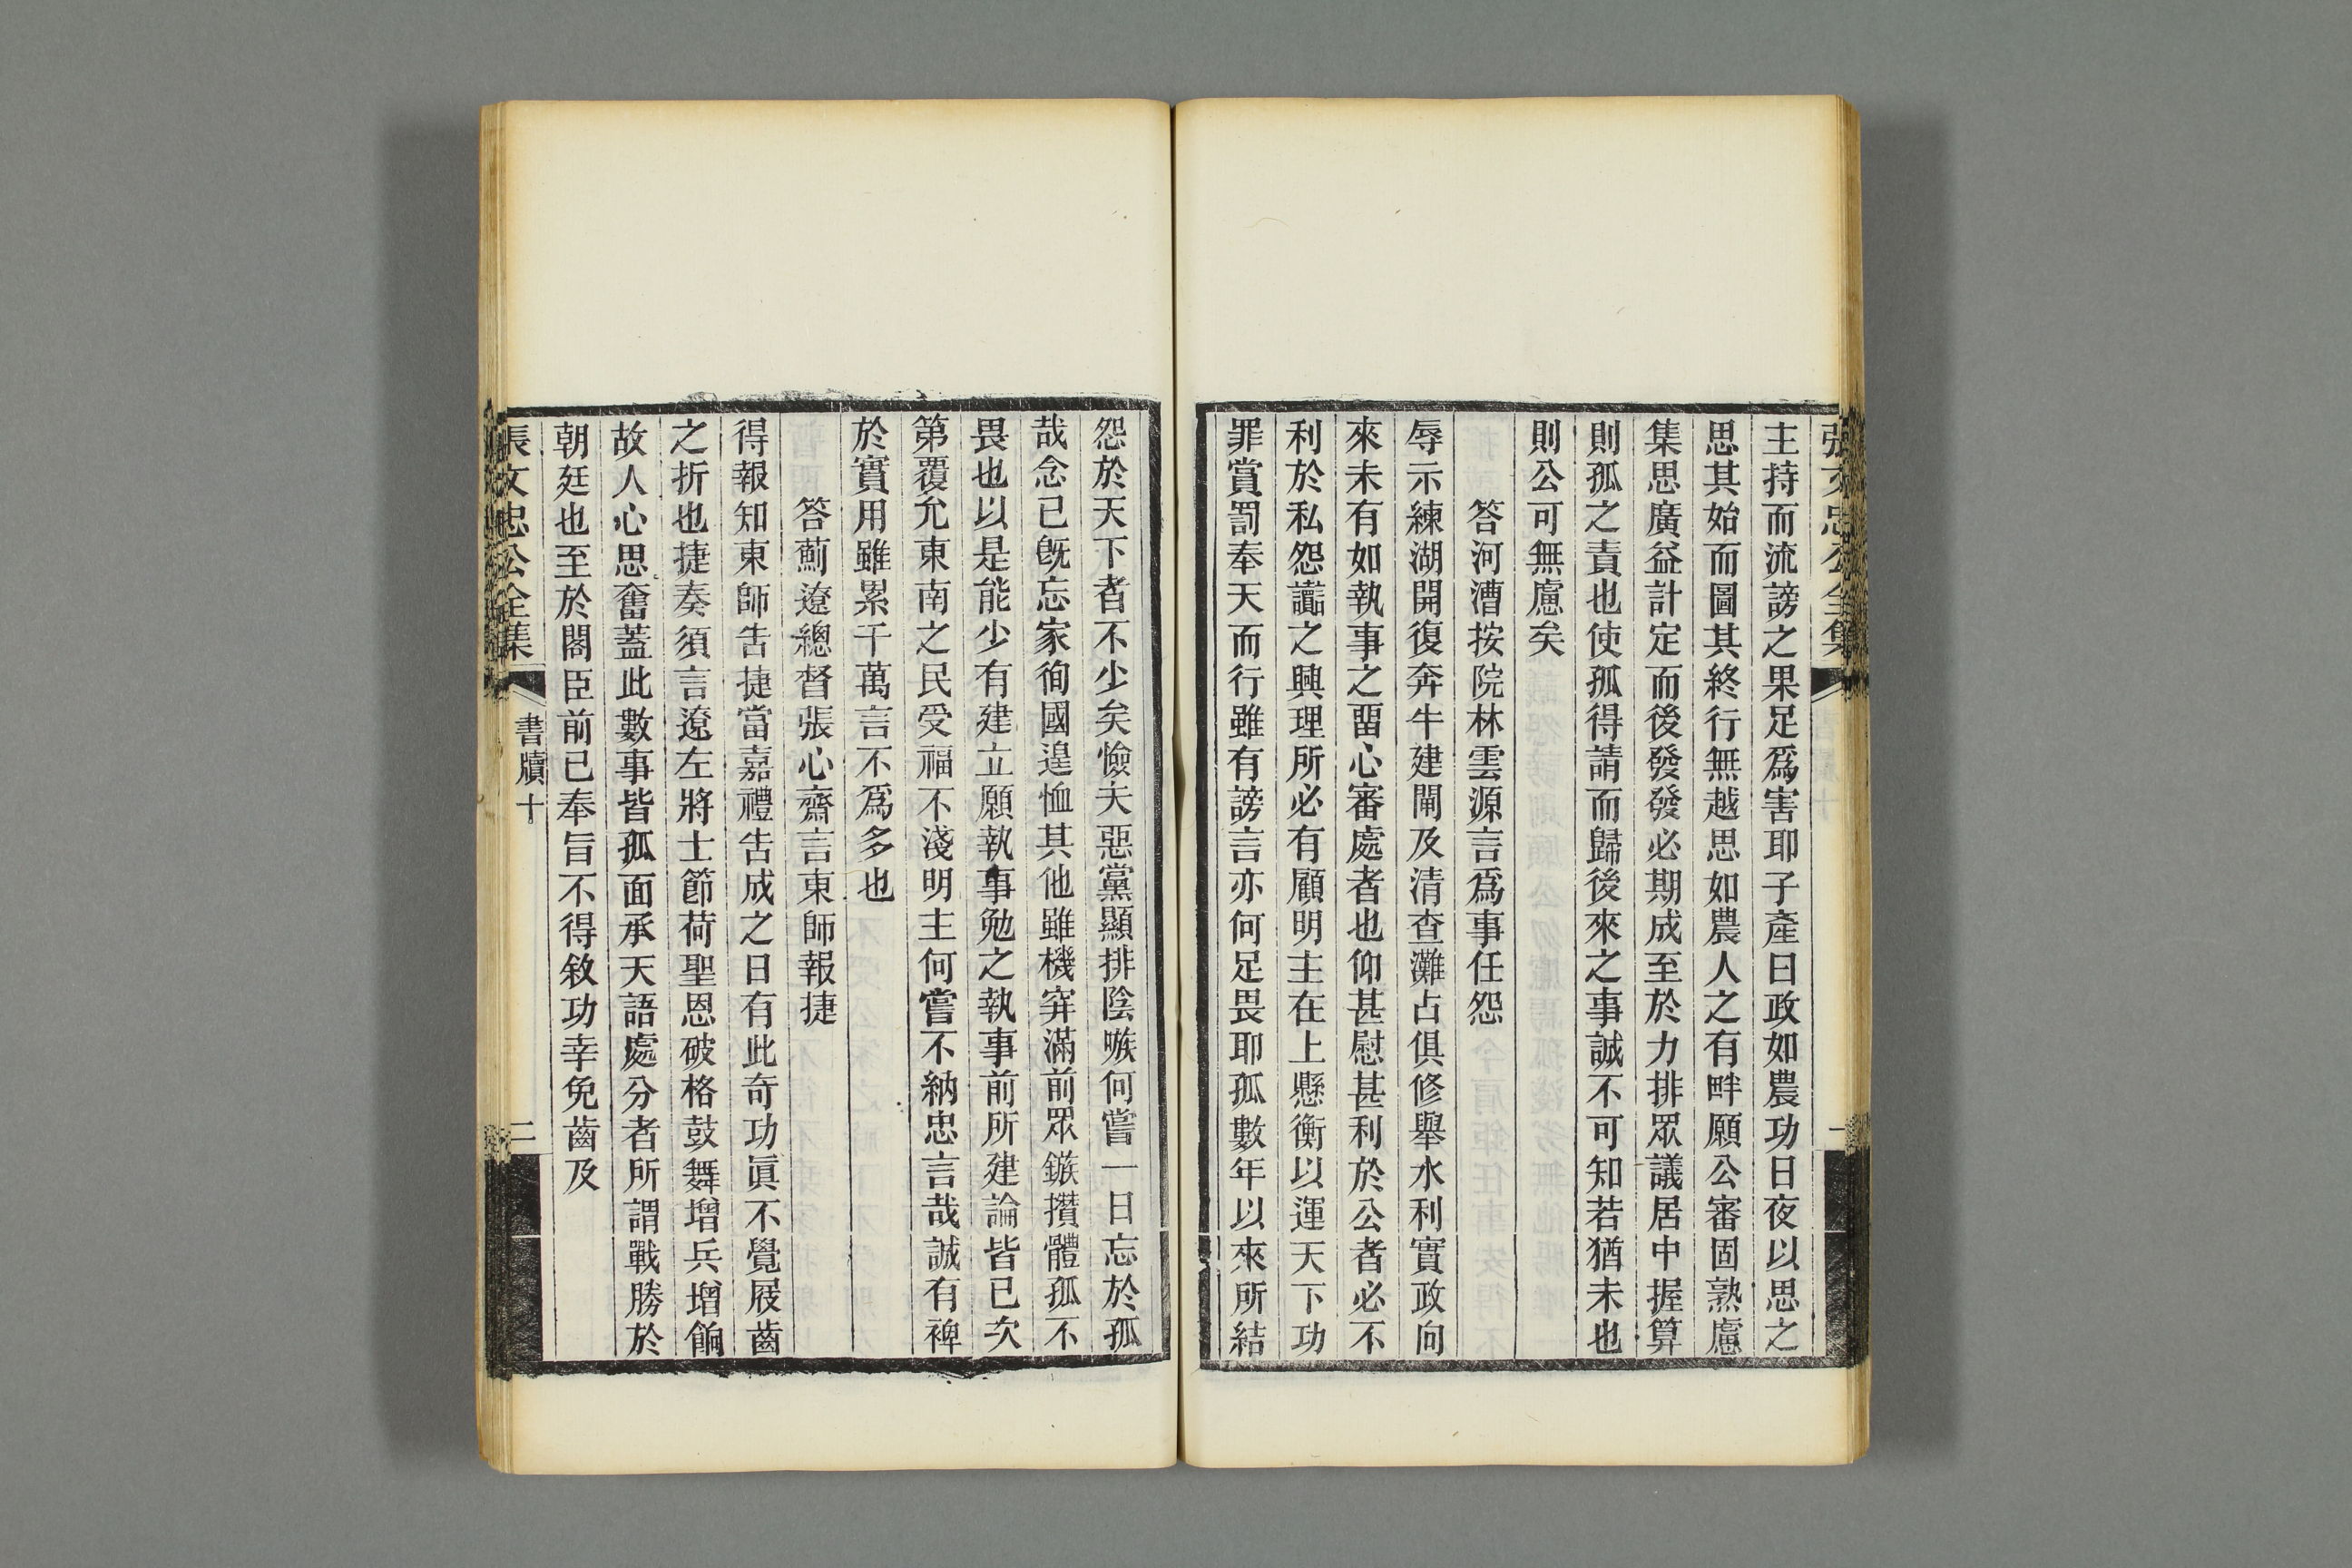 張文忠公全集
一
主持而流謗之果足爲害耶子產曰政如農功日夜以思之
思其始而圖其終行無越思如農人之有畔願公審固熟慮
集思廣益計定而後發發必期成至於力排眾議居中握算
則孤之責也使孤得請而歸後來之事誠不可知若猶未也
則公可無慮矣
答河漕按院林雲源言爲事任怨
辱示練湖開復奔牛建閘及清查灘占俱修舉水利實政向
來未有如執事之畱心審處者也仰甚慰甚利於公者必不
利於私怨讟之興理所必有顧明主在上懸衡以運天下功
罪賞罰奉天而行雖有謗言亦何足畏耶孤數年以來所結
怨於天下者不少矣憸夫惡黨顯排陰嗾何嘗一日忘於孤
哉念已旣忘家徇國遑恤其他雖機穽滿前眾鏃攢體孤不
畏也以是能少有建立願執事勉之執事前所建論皆已次
第覆允東南之民受福不淺明主何嘗不納忠言哉誠有裨
於實用雖累千萬言不爲多也
答薊遼總督張心齋言東師報捷
得報知東師告捷當嘉禮告成之日有此奇功眞不覺屐齒
之折也捷奏須言遼左將士節荷聖恩破格鼓舞增兵增餉
故人心思奮蓋此數事皆孤面承天語處分者所謂戰勝於
朝廷也至於閣臣前已奉旨不得敘功幸免齒及
張文忠公全集
書牘十
二